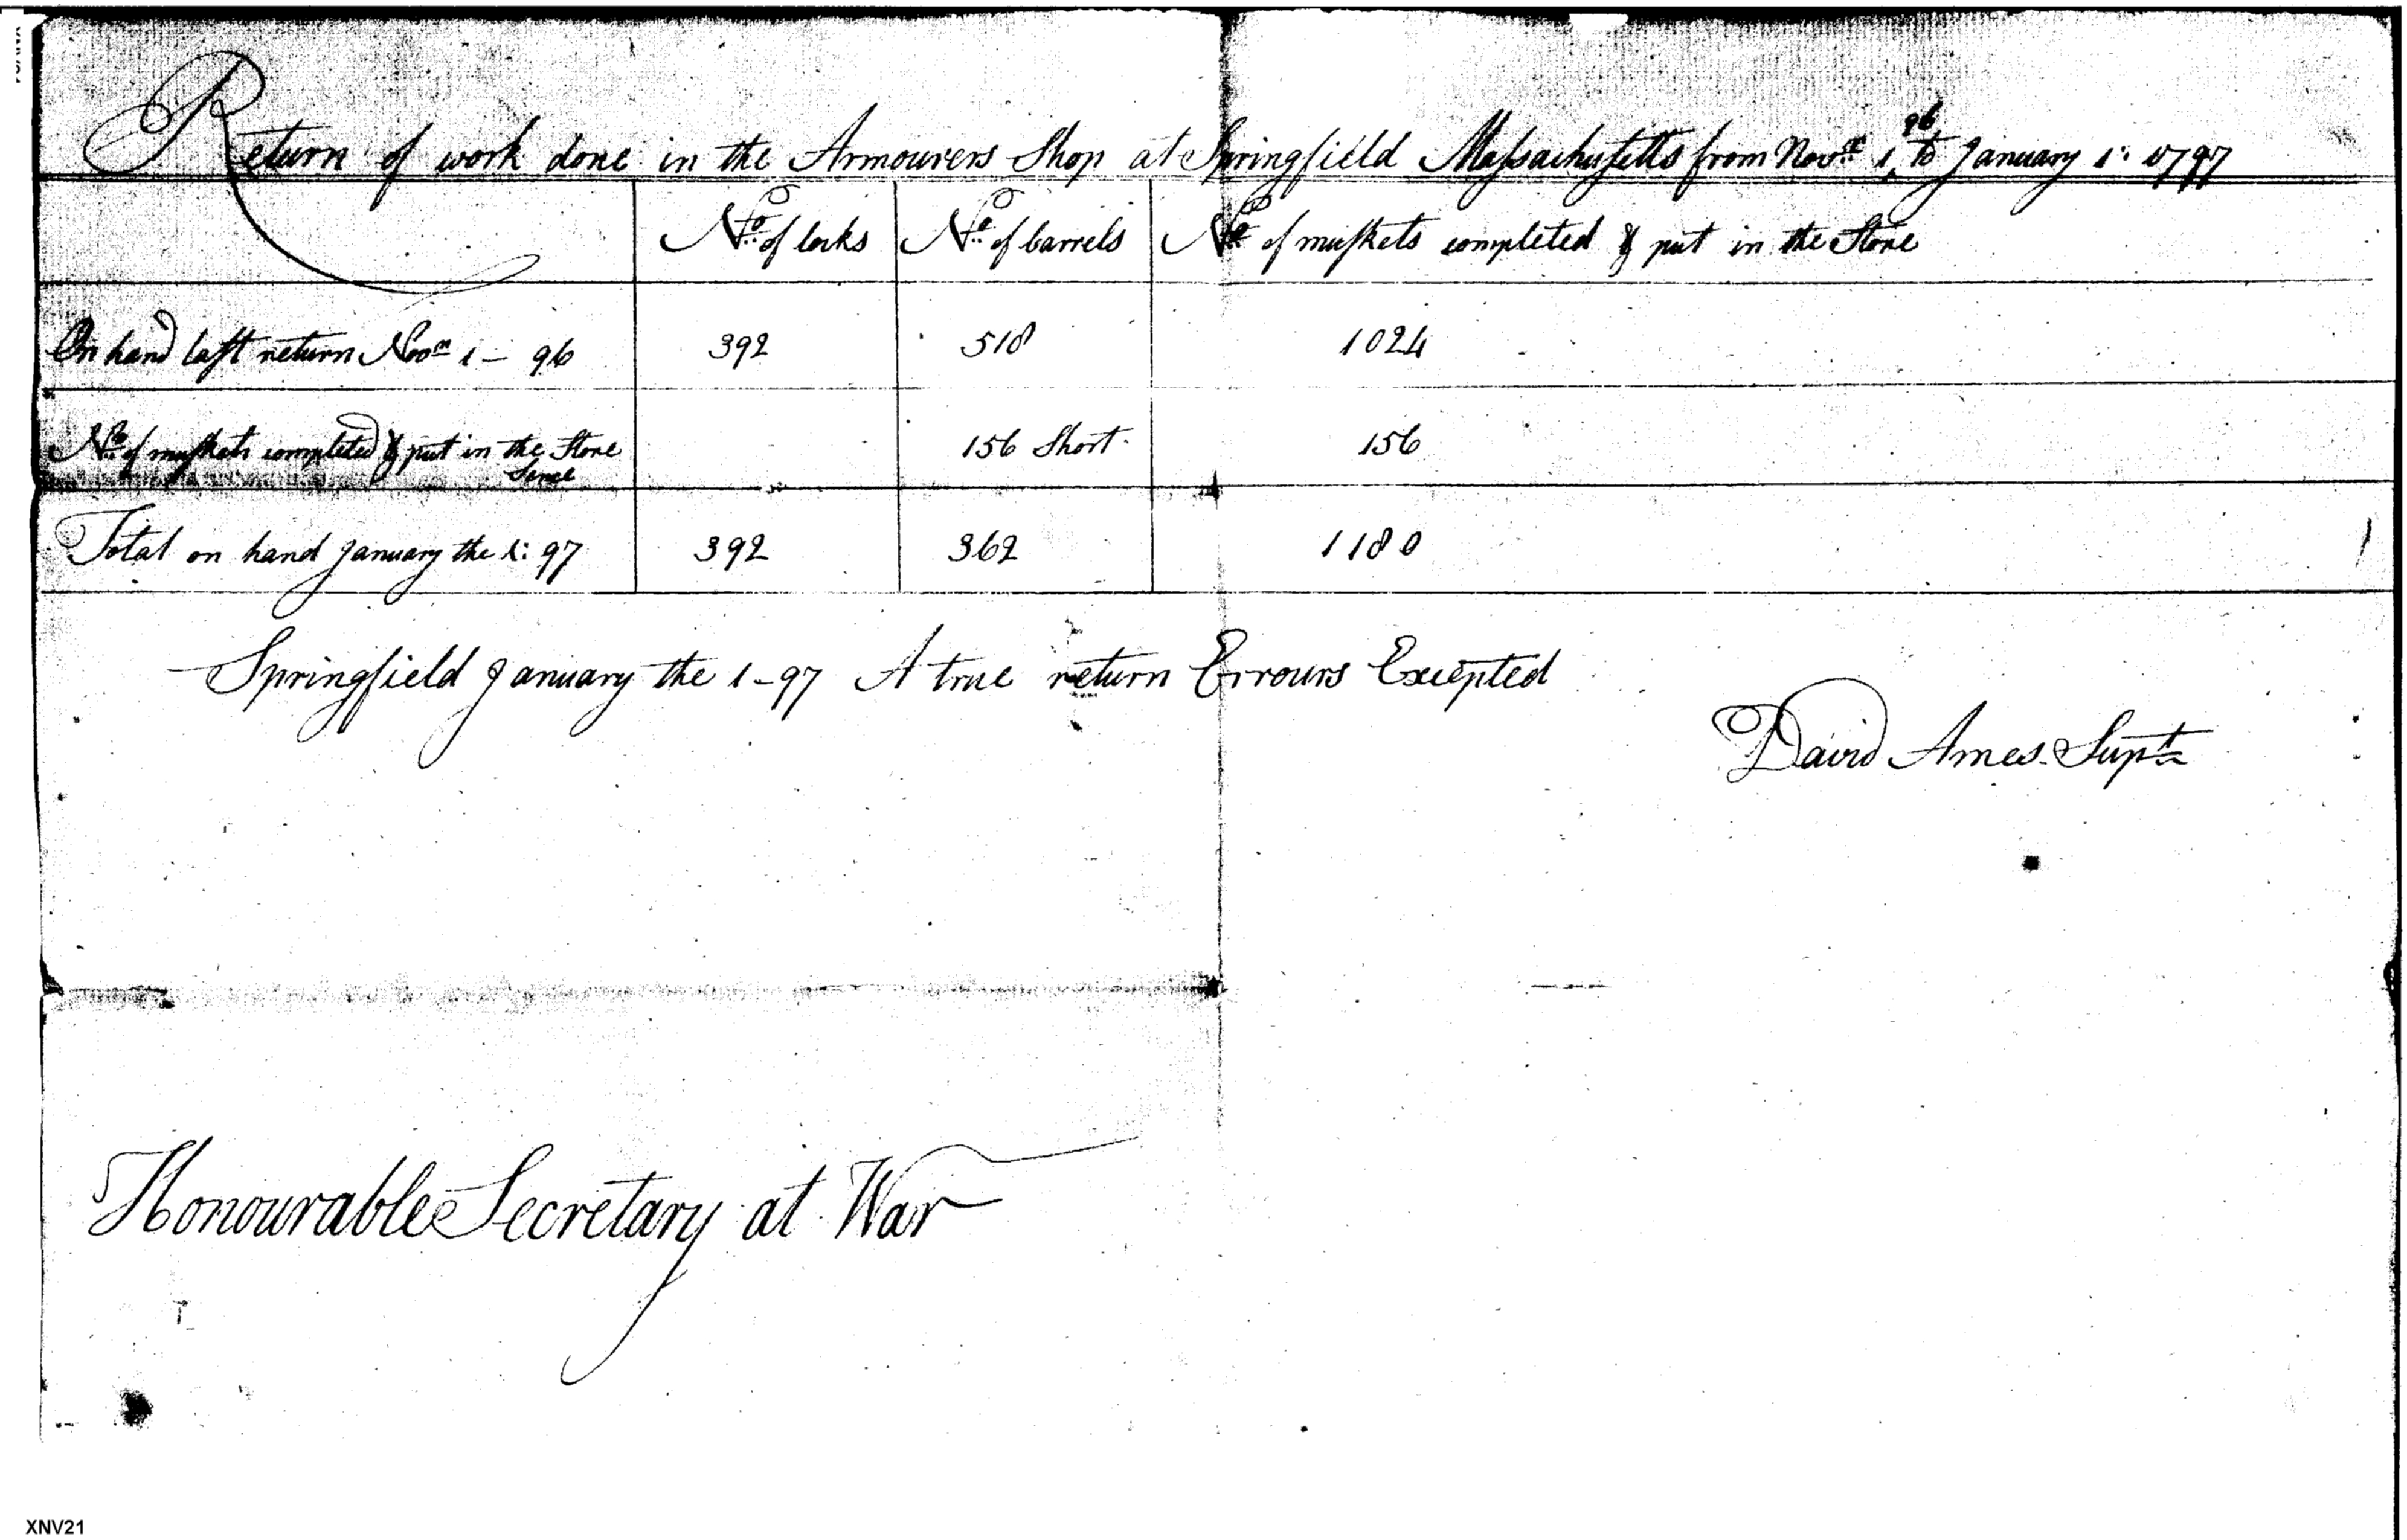 96
Return of work done in the Armourers Shop at Springfield Massachusetts from Novr 1, to January 1: 1797
No of locks No of barrels No of muskets completed & put in the Store
On hand last return Novm 1 - 96 392 518 1024
No of muskets completed & put in the Store 156 Short 156
Sence
Total on hand January the 1: 97 392 362 1180
Springfield January the 1-97 A true return Errours Excepted
David Ames Supt
Honourable Secretary at War
XNV21